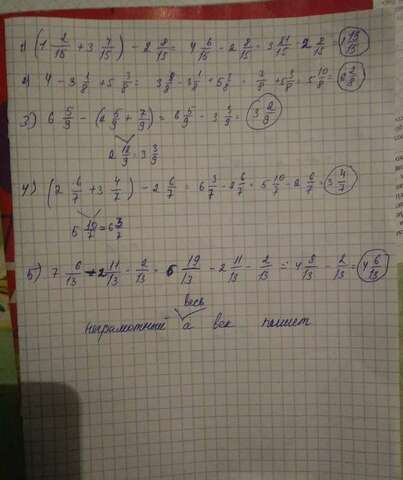 1) (1 2/15 + 3 4/15) - 2 8/15 = 4 6/15 - 2 8/15 = 3 21/15 - 2 8/15 = 1 13/15
2) 4 - 3 1/8 + 5 3/8 = 3 8/8 - 3 1/8 + 5 3/8 = 7/8 + 5 3/8 = 5 10/8
3) 6 5/9 - (2 5/9 + 7/9) = 6 5/9 - 3 3/9 = 3 2/9
2 12/9 = 3 3/9
4) (2 6/7 + 3 4/7) - 2 6/7 = 6 3/7 - 2 6/7 = 5 10/7 - 2 6/7 = 3 4/7
5 10/7 = 6 3/7
5) 7 6/13 - 2 11/13 - 2/13 = 6 19/13 - 2 11/13 - 2/13 = 4 8/13 - 2/13 = 4 6/13
весь
неграмотный а век пишет